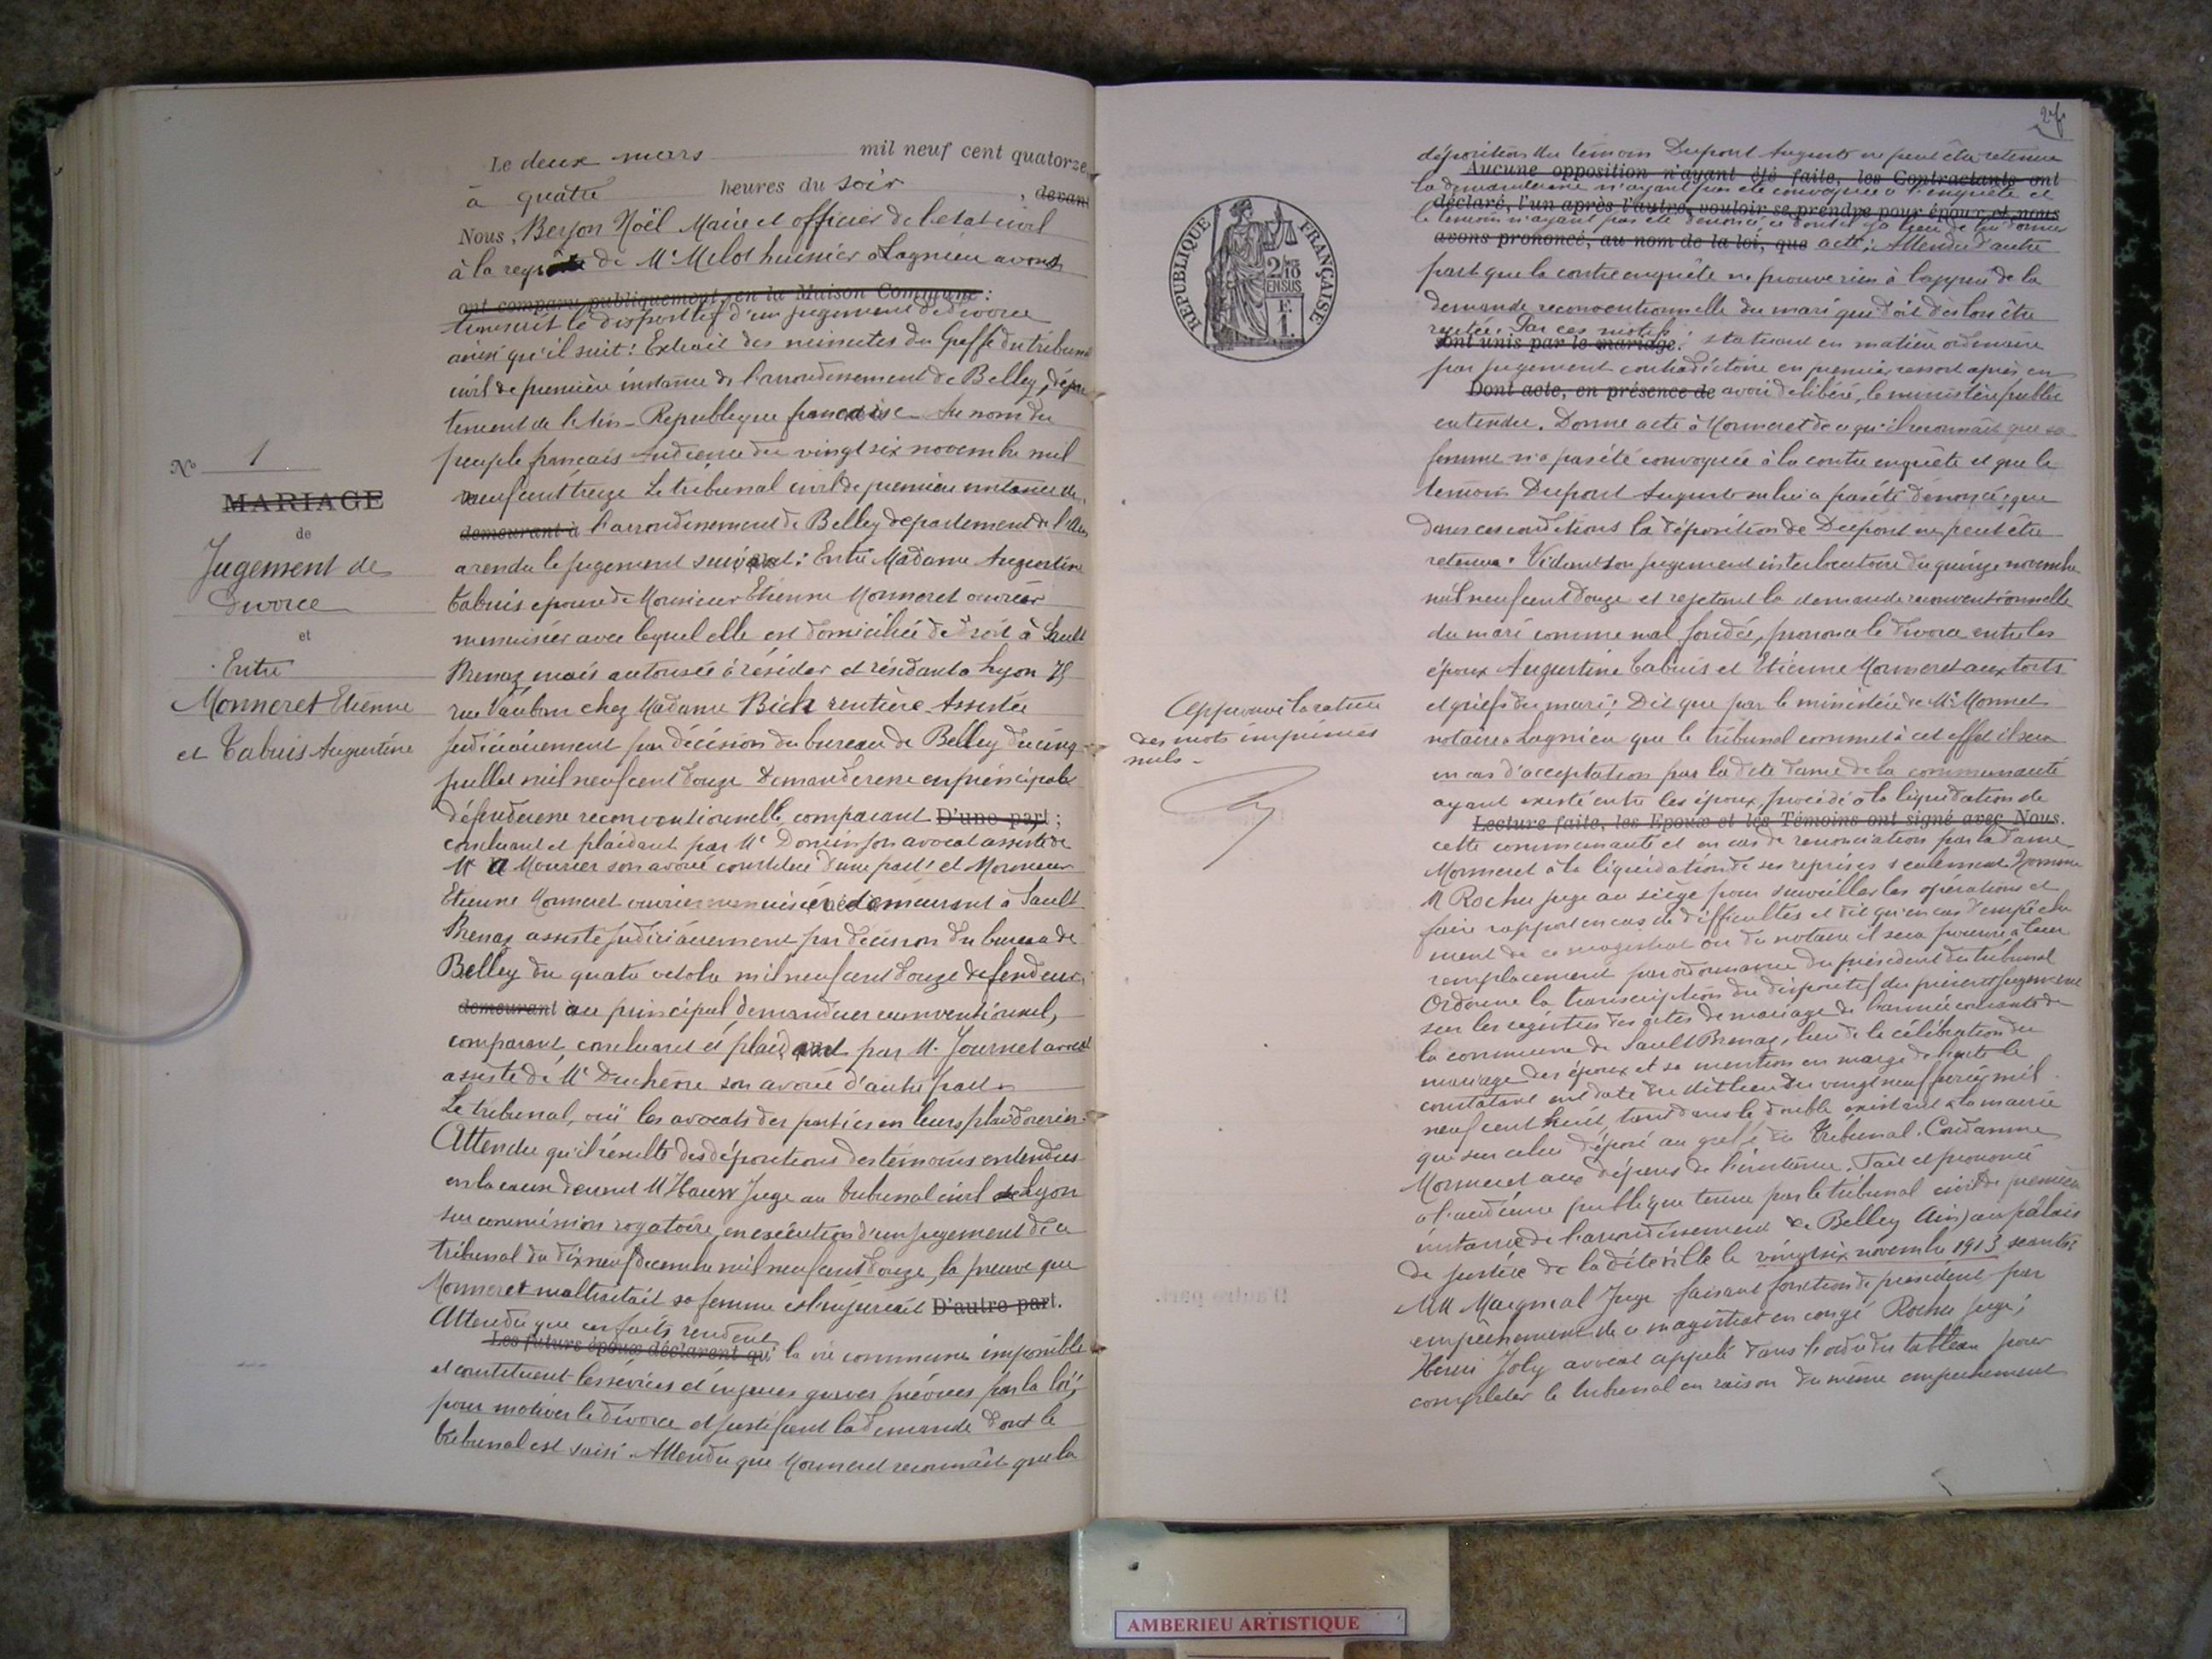 Le deux mars mil neuf cent quatorze
à quatre heures du soir, devant
Nous, Berjon Noël Maire et officier de l'état civil
à la requête de Me Melot huissier à Lagnieu avons
ont comparu publiquement, en la Maison Commune :
transcrit le dispositif d'un jugement de divorce
ainsi qu'il suit : Extrait des minutes du Greffe du tribunal
civil de première instance de l'arrondissement de Belley, dépar
tement de l'Ain - Republique française - Au nom du
peuple français Audience du vingt six novembre mil
neuf cent treize Le tribunal civil de première instance de
demeurant à l'arrondissement de Belley departement de l'Ain
a rendu le jugement suivant : Entre Madame Augustine
Tabuis epouse de Monsieur Etienne Monneret ouvrier
menuisier avec lequel elle est domiciliée de droit à Sault
Brenaz mais autorisée à résider et résidant à Lyon
rue Vauban chez Madame Bich rentière - Assistée
judiciairement par décision du bureau de Belley du cinq
juillet mil neuf cent douze Demanderesse en principale
défenderesse reconventionnelle, comparant D'une part ;
concluant et plaidant par Me avocat assisté de
Me Mourier son avoué constitué d'une part et Monsieur
Etienne Monneret ouvrier menuisier demeurant à Sault
Brenaz assisté judiciairement par decision du bureau de
Belley du quatre octobre mil neuf cent douze défendeur,
demeurant à au principal demandeur reconventionnel,
comparant concluant et plaidant par Me Journet avocat
assisté de Me Duchêne son avoué d'autre part
Le tribunal, ouï les avocats des parties en leurs plaidoiries
Attendu qu'il résulte des dépositions des témoins entendus
en la cause devant M Juge au tribunal civil de Lyon
sur commission rogatoire, en exécution d'un jugement de ce
tribunal du dix neuf decembre mil neuf cent douze, la preuve que
Monneret maltraitait sa femme et l'injuriait D'autre part.
Attendu que ces faits rendent
Les futurs époux déclarent qu' la vie commune impossible
et constituent les sévices et injures graves prévues par la loi,
pour motiver le divorce et justifient la demande dont le
tribunal est saisi. Attendu que Monneret reconnaît que la
No 1
MARIAGE
de
Jugement de
divorce
et
Entre
Monneret Etienne
et Tabuis Augustine
RÉPUBLIQUE FRANÇAISE
2/10
EN SUS
F.
1.
Approuvé la rature
des mots imprimés
nuls -
déposition du témoin Dupont Auguste ne peut être retenue
Aucune opposition n'ayant été faite, les Contractants ont
la demanderesse n'ayant pas été convoquée à l'enquête et
déclaré, l'un après l'autre, vouloir se prendre pour époux, et nous
le témoin n'ayant pas été dénoncé, ce dont il y a lieu de lui donner
avons prononcé, au nom de la loi, que acte ; Attendu d'autre
part que la contre enquête ne prouve rien à l'appui de la
demande reconventionnelle du mari qui doit dès lors être
rejetée. Par ces motifs
sont unis par le mariage. statuant en matière ordinaire
par jugement contradictoire en premier ressort après en
Dont acte, en présence de avoir délibéré, le ministère public
entendu. Donne acte à Monneret de ce qu'il reconnaît que sa
femme n'a pas été convoquée à la contre enquête et que le
témoin Dupont Auguste ne lui a pas été dénoncé, que
dans ces conditions la déposition de Dupont ne peut être
retenue. Vidant son jugement interlocutoire du quinze novembre
mil neuf cent douze et rejetant la demande reconventionnelle
du mari comme mal fondée, prononce le divorce entre les
époux Augustine Tabuis et Etienne Monneret aux torts
et griefs du mari ; Dit que par le ministère de Me Monnet
notaire à Lagnieu que le tribunal commet à cet effet il sera
en cas d'acceptation par la dite dame de la communauté
ayant existé entre les époux, procédé à la liquidation de
Lecture faite, les Epoux et les Témoins ont signé avec Nous.
cette communauté et en cas de renonciation par la Dame
Monneret à la liquidation de ses reprises seulement. Nomme
M Rocher juge au siège pour surveiller les opérations et
faire rapport en cas de difficultés et dit qu'en cas d'empêche
ment de ce magistrat ou du notaire il sera pourvu à leur
remplacement par ordonnance du président du tribunal
Ordonne la transcription du dispositif du présent jugement
sur les registres des actes de mariage de l'année courante de
la commune de Sault Brenaz, lieu de la célébration du
mariage des époux et sa mention en marge de l'acte le
constatant en date du dit lieu du vingt neuf mil
neuf cent huit, tant dans le double existant à la mairie
que sur celui déposé au greffe du Tribunal. Condamne
Monneret aux dépens de l'instance. Fait et prononcé
à l'audience publique tenue par le tribunal civil de première
instance de l'arrondissement de Belley (Ain) au palais
de justice de la dite ville le vingt six novembre 1913 séants :
MM Juge faisant fonction de président par
empêchement de ce magistrat en congé Rocher juge ;
Henri Joly avocat appelé dans l'ordre du tableau pour
compléter le tribunal en raison du même empêchement
AMBERIEU ARTISTIQUE